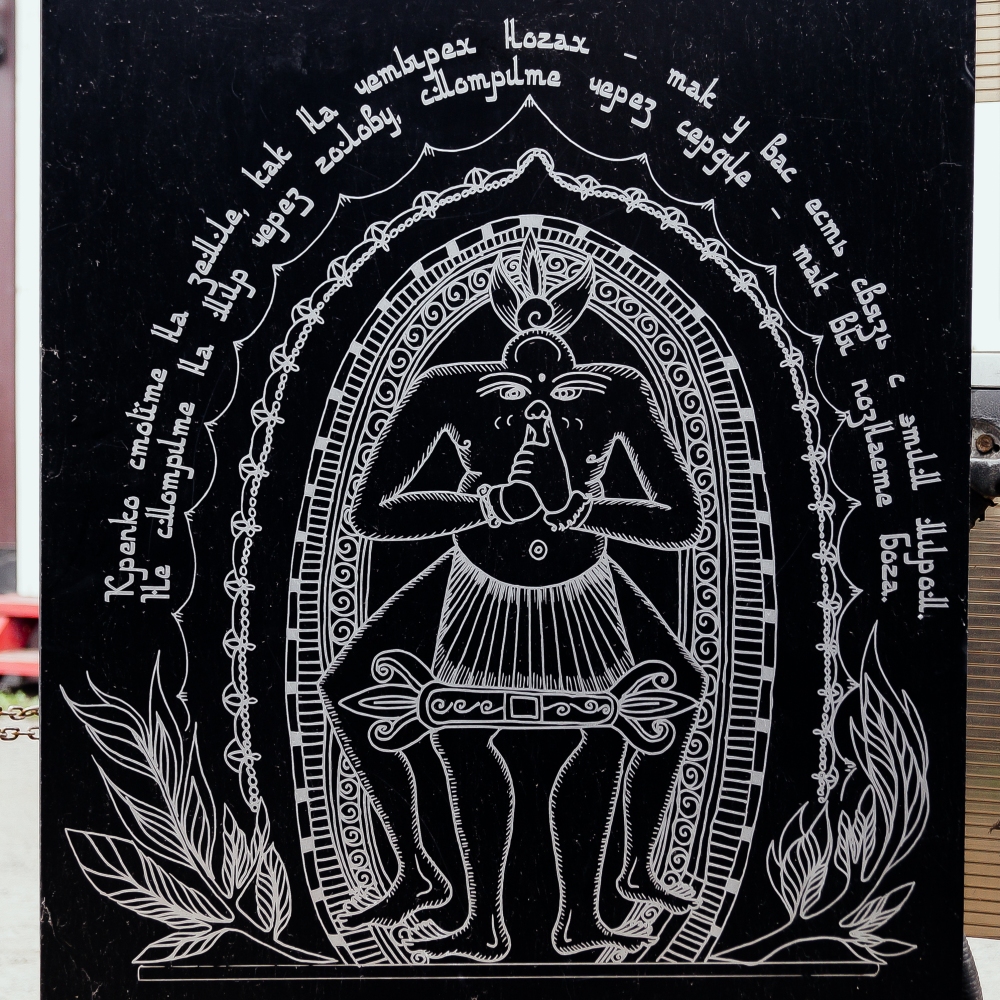 Крепко стойте на земле, как на четырех ногах – так у вас есть связь с этим миром.
Не смотрите на мир через голову, смотрите через сердце – так вы познаете Бога.